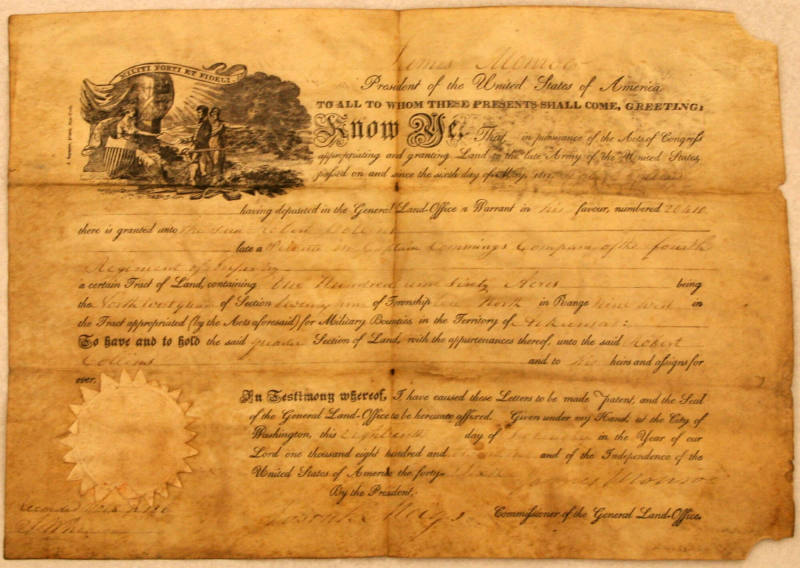 James Monroe
MILITI FORTI ET FIDELI.
President of the United States of America
TO ALL TO WHOM THESE PRESENTS SHALL COME, GREETING:
Know Ye, That, in pursuance of the Acts of Congress
appropriating and granting Land to the late Army of the United States,
passed on and since the sixth day of May, Robert Collins
having deposited in the General Land-Office a Warrant in his favour, numbered 20410
there is granted unto the said Robert Collins
late a Private in Captain Cummings Company of the fourth
Regiment of Infantry
a certain Tract of Land, containing One Hundred and Sixty Acres being
the North West quarter of Section twenty nine of Township North in Range nine West in
the Tract appropriated (by the Acts aforesaid) for Military Bounties, in the Territory of Arkansas:
To have and to hold the said quarter Section of Land, with the appurtenances thereof, unto the said Robert
Collins and to his heirs and assigns for
ever.
In Testimony whereof, I have caused these Letters to be made Patent, and the Seal
of the General Land-Office to be hereunto affixed. Given under my Hand, at the City of
Washington, this eighteenth day of in the Year of our
Lord one thousand eight hundred and and of the Independence of the
United States of America the forty-
By the President, James Monroe
Josiah Meigs Commissioner of the General Land-Office.
recorded